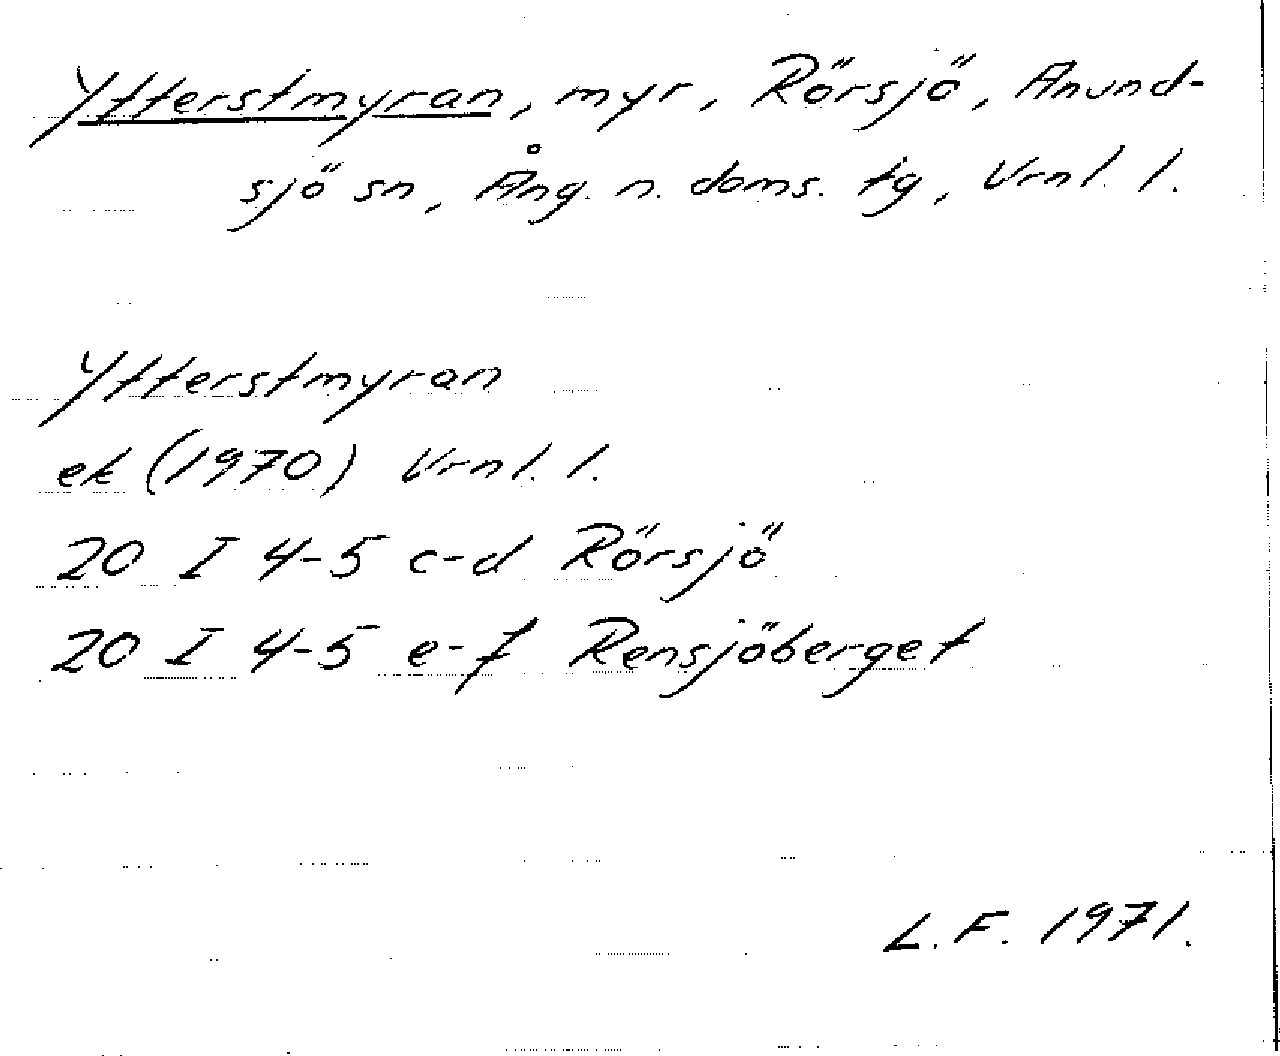 Ytterstmyran, myr, Rörsjö, Anund-
sjö sn, Ång. n. doms. tg, Vrnl. l.
Ytterstmyran
ek (1970) Vrnl. l.
20 I 4-5 c-d Rörsjö
20 I 4-5 e-f Rensjöberget
L. F. 1971.